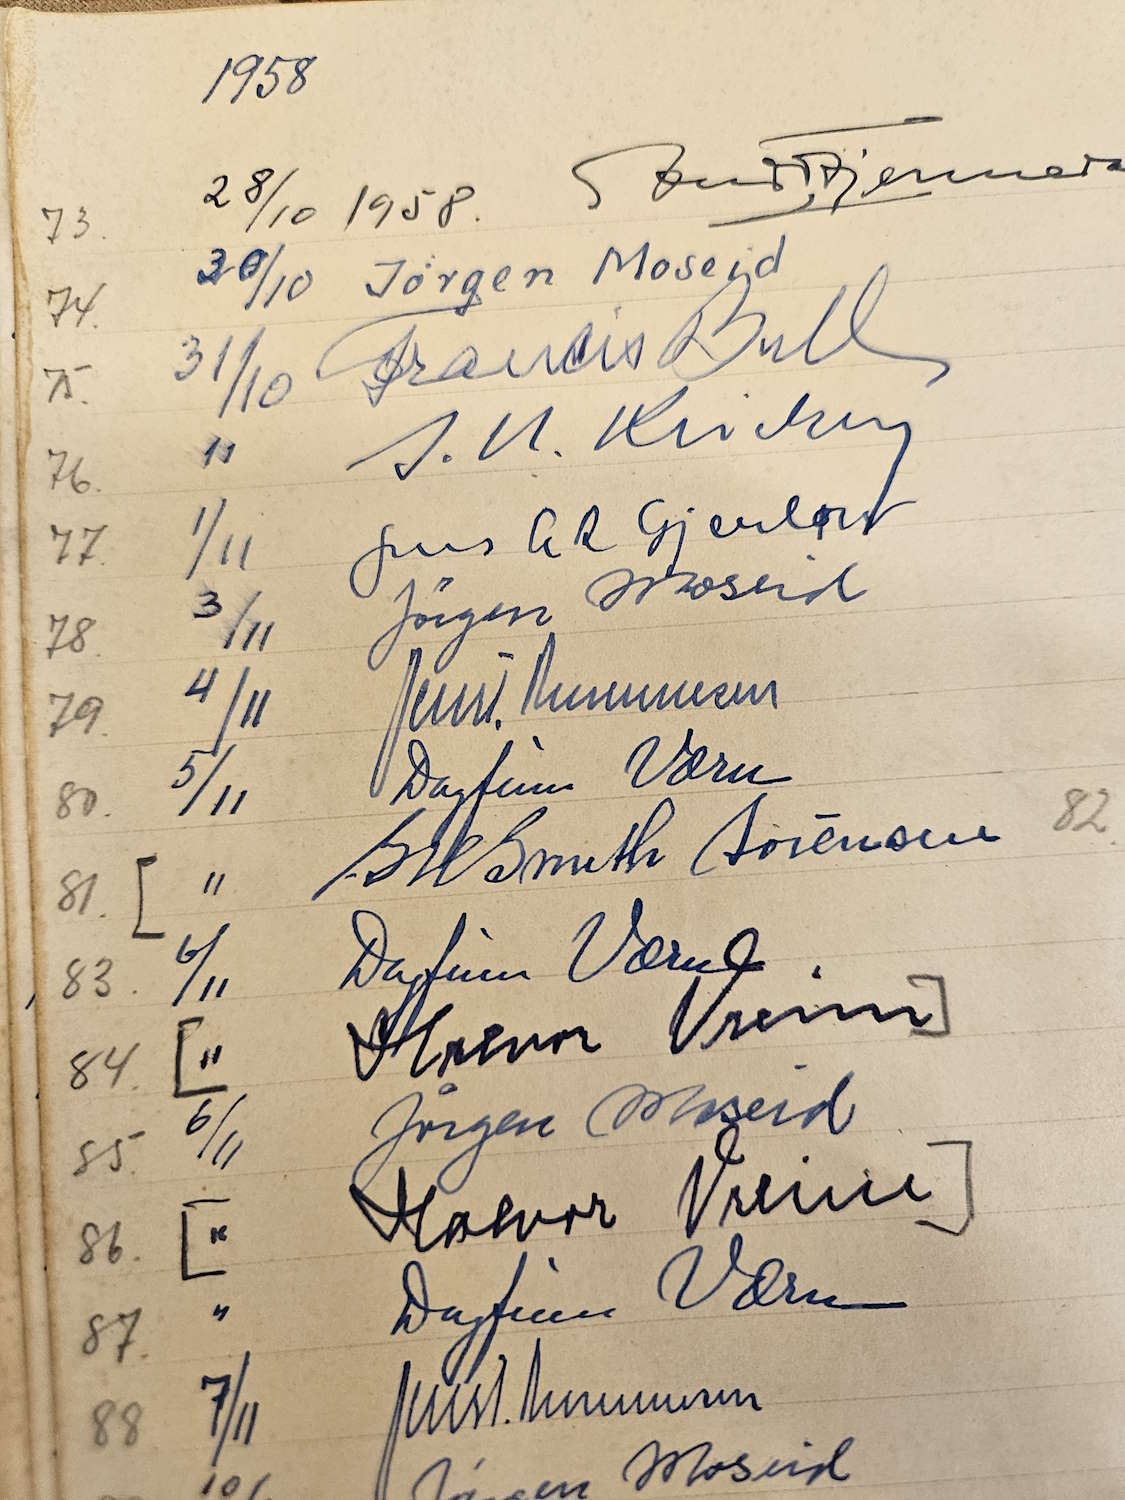 1958
73. 28/10 1958.
74. 30/10 Jörgen Moseid
75. 31/10 Francis Bull
76. "
77. 1/11 Jens A R Gjerløw
78. 3/11 Jörgen Moseid
79. 4/11
80. 5/11 Dagfinn Værn 82.
81. [ " Smith Sørensen
83. 6/11 Dagfinn Værn
84. [ " Halvor Vreim ]
85. 6/11 Jørgen Moseid
86. [ " Halvor Vreim ]
87. " Dagfinn Værn
88 7/11
10/ Jörgen Moseid